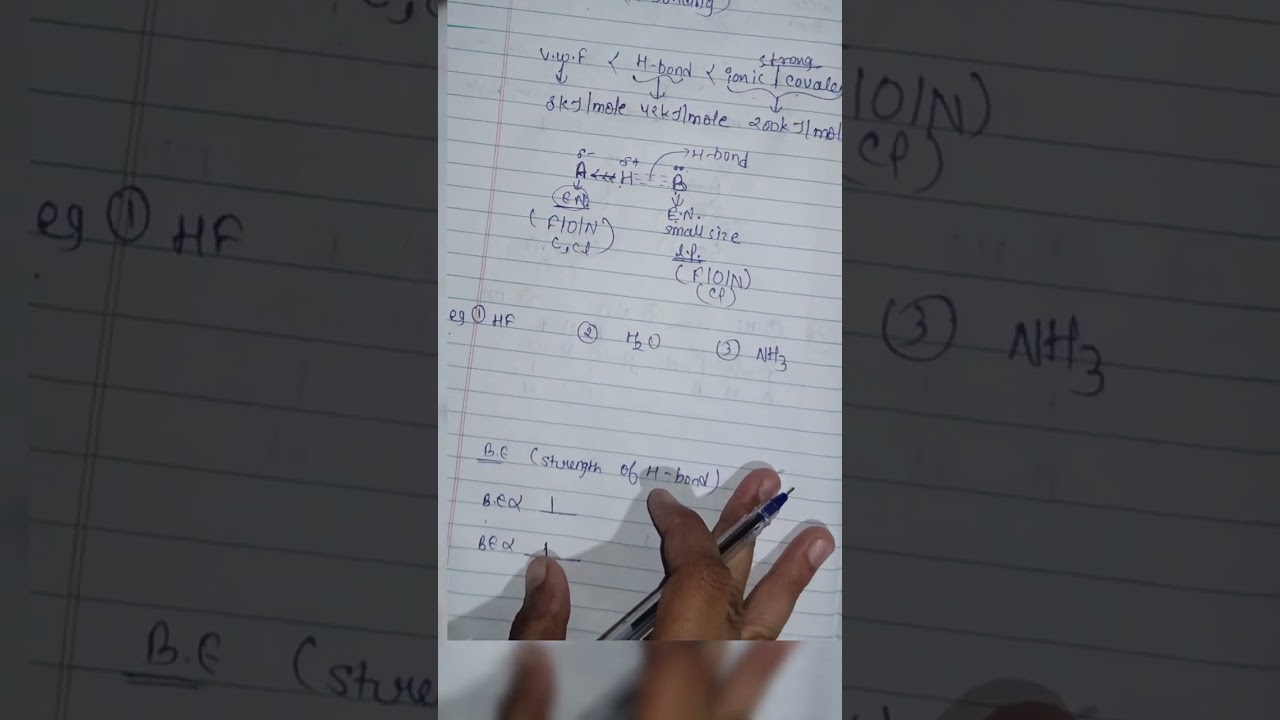 strong
V.W.F < H-bond < Ionic | Covale
8kJ/mole 42kJ/mole 200kJ/mol
δ- δ+ → H-bond
A H B
EN E.N.
(F/O/N) small size
C, Cl l.p.
(F/O/N)
(Cl)
eg ① HF ② H2O ③ NH3
B.E (strength of H-bond)
B.E ∝ 1
BE ∝ 1